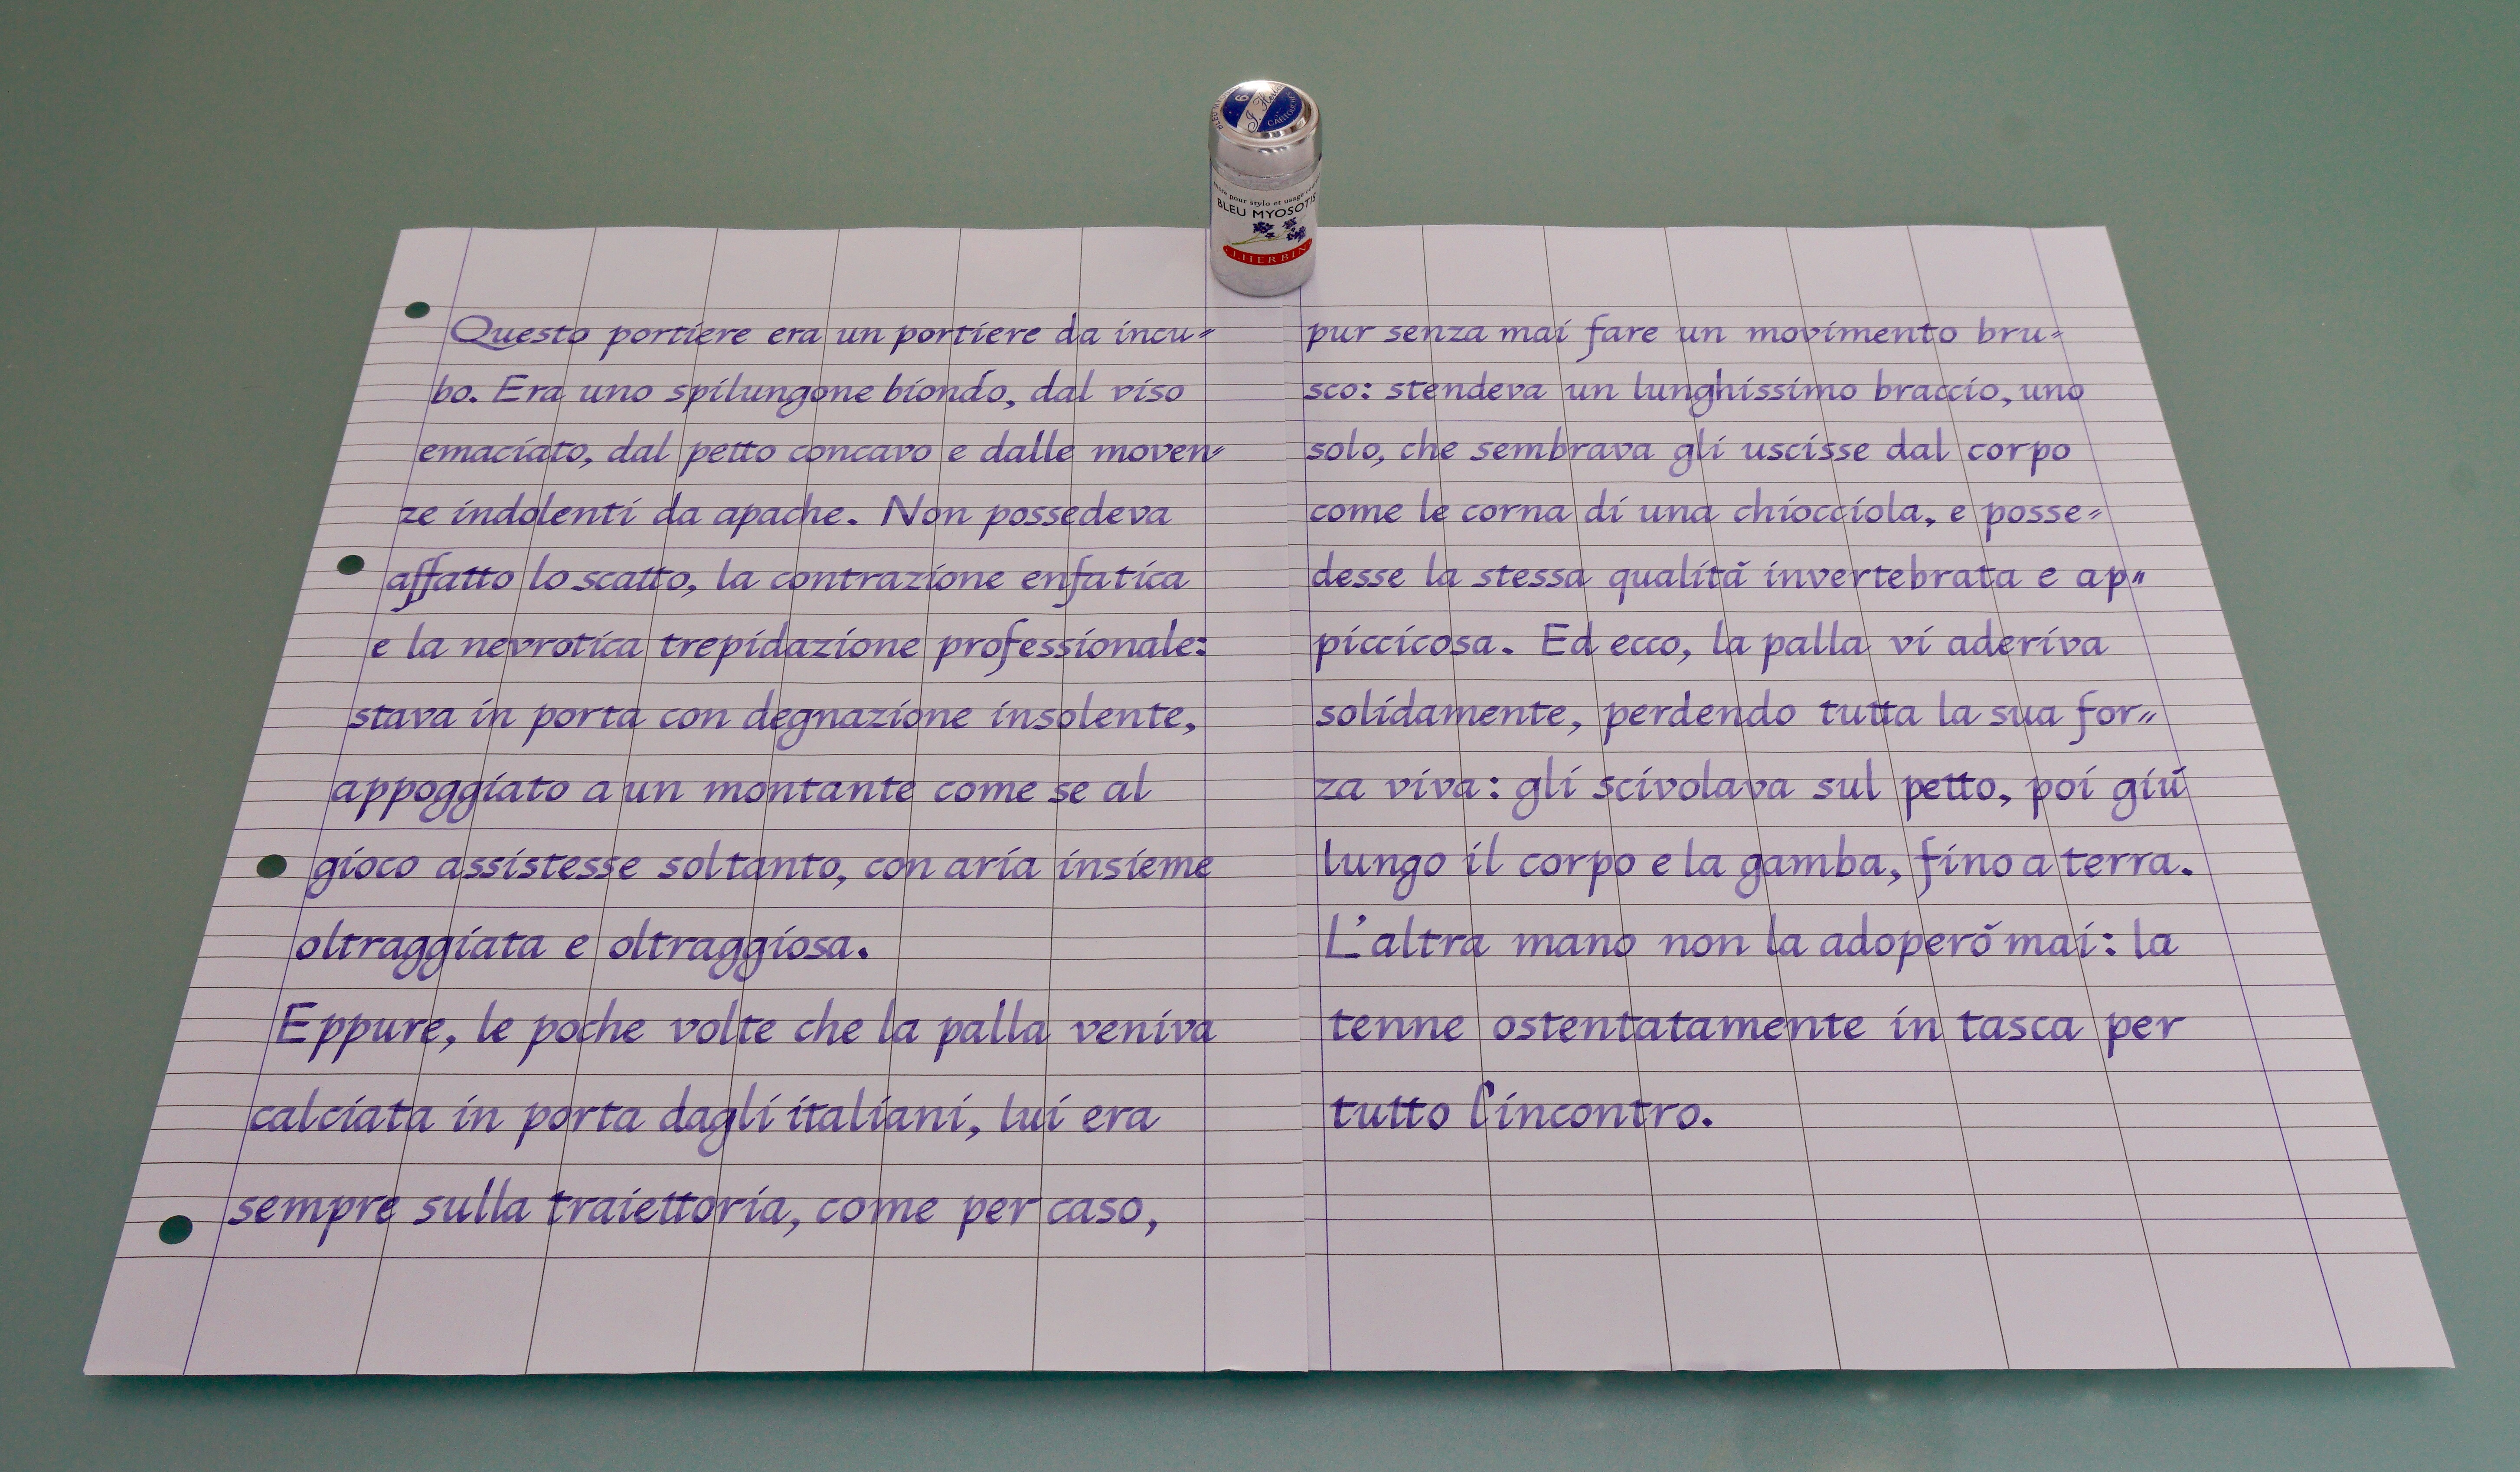 J. Herbin
CARTOUCHES
BLEU MYOSOTIS
J. HERBIN
Questo portiere era un portiere da incu=
bo. Era uno spilungone biondo, dal viso
emaciato, dal petto concavo e dalle moven=
ze indolenti da apache. Non possedeva
affatto lo scatto, la contrazione enfatica
e la nevrotica trepidazione professionale:
stava in porta con degnazione insolente,
appoggiato a un montante come se al
gioco assistesse soltanto, con aria insieme
oltraggiata e oltraggiosa.
Eppure, le poche volte che la palla veniva
calciata in porta dagli italiani, lui era
sempre sulla traiettoria, come per caso,
pur senza mai fare un movimento bru=
sco: stendeva un lunghissimo braccio, uno
solo, che sembrava gli uscisse dal corpo
come le corna di una chiocciola, e posse=
desse la stessa qualità invertebrata e ap=
piccicosa. Ed ecco, la palla vi aderiva
solidamente, perdendo tutta la sua for=
za viva: gli scivolava sul petto, poi giù
lungo il corpo e la gamba, fino a terra.
L'altra mano non la adoperò mai: la
tenne ostentatamente in tasca per
tutto l'incontro.